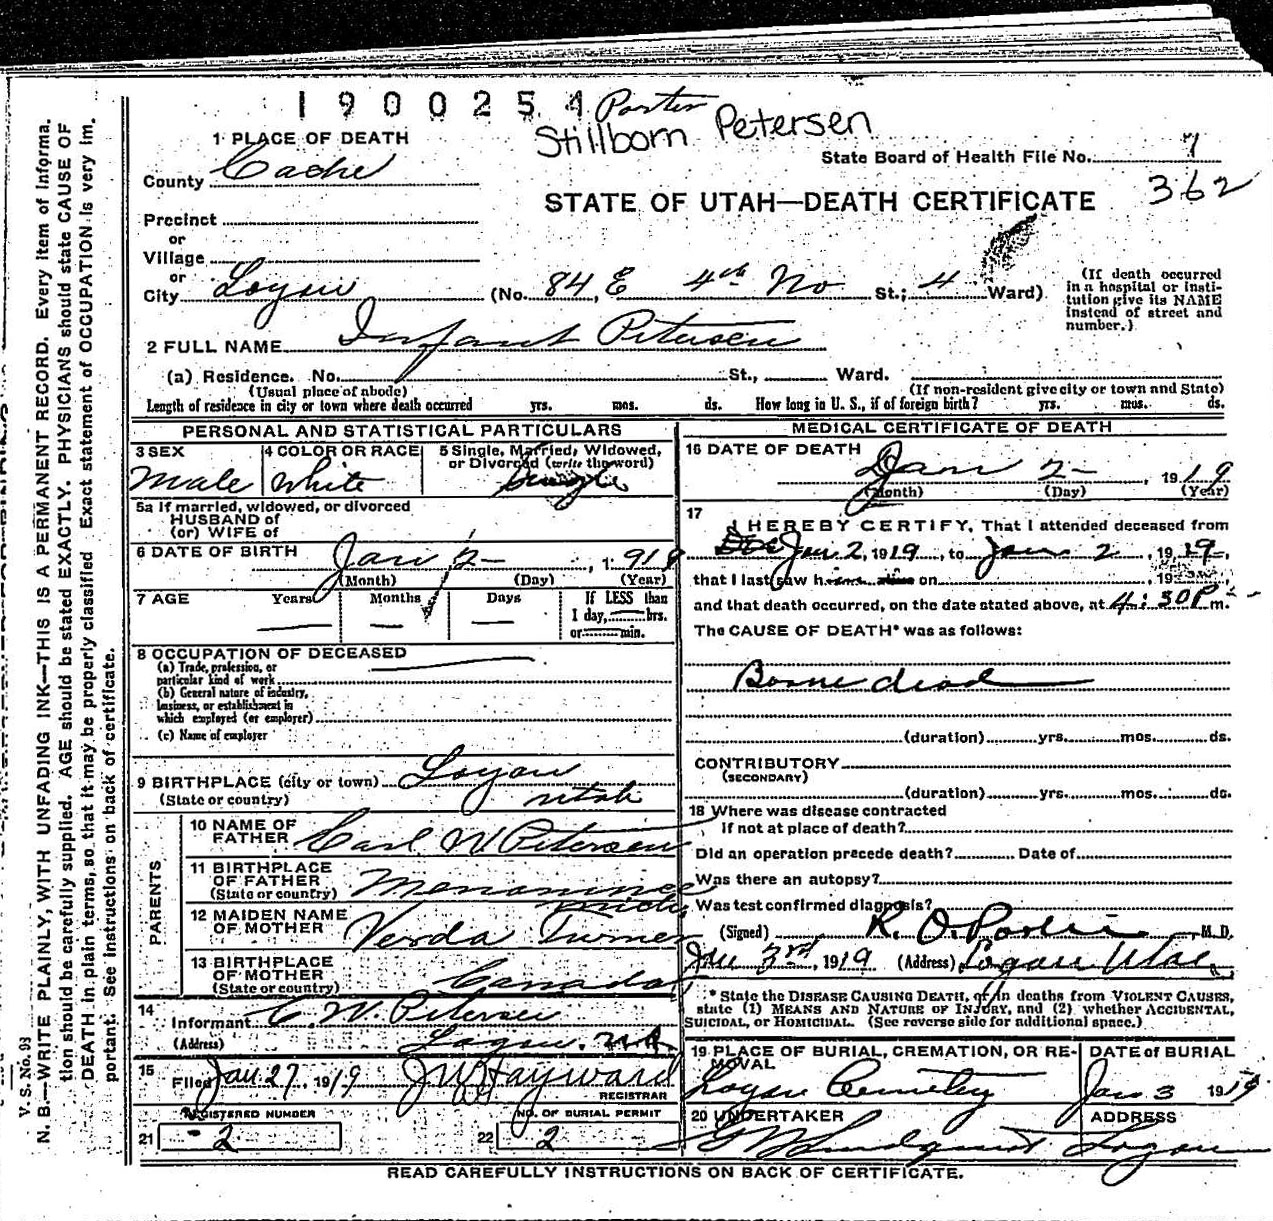 1900254 Porter
Stillborn Petersen
1 PLACE OF DEATH
State Board of Health File No. 7
County Cache
362
STATE OF UTAH—DEATH CERTIFICATE
Precinct
or
Village
or
City Logan (No. 84, E 4th No St.; 4 Ward)
(If death occurred
in a hospital or insti-
tution give its NAME
instead of street and
number.)
2 FULL NAME Infant Petersen
(a) Residence. No. St., Ward.
(Usual place of abode) (If non-resident give city or town and State)
Length of residence in city or town where death occurred yrs. mos. ds. How long in U. S., if of foreign birth? yrs. mos. ds.
PERSONAL AND STATISTICAL PARTICULARS
3 SEX 4 COLOR OR RACE 5 Single, Married, Widowed,
or Divorced (write the word)
Male White Single
5a If married, widowed, or divorced
HUSBAND of
(or) WIFE of
6 DATE OF BIRTH Jan 2 - , 1919
(Month) (Day) (Year)
7 AGE Years Months Days If LESS than
1 day, hrs.
or min.
8 OCCUPATION OF DECEASED
(a) Trade, profession, or
particular kind of work
(b) General nature of industry,
business, or establishment in
which employed (or employer)
(c) Name of employer
9 BIRTHPLACE (city or town) Logan
(State or country) Utah
PARENTS
10 NAME OF
FATHER Carl W Petersen
11 BIRTHPLACE
OF FATHER
(State or country) Menominee
Mich
12 MAIDEN NAME
OF MOTHER Verda Turner
13 BIRTHPLACE
OF MOTHER
(State or country) Canada
14
Informant C. W. Petersen
(Address) Logan.
15 Filed Jan 27, 1919 J W Hayward
REGISTRAR
REGISTERED NUMBER NO. OF BURIAL PERMIT
21 - 2 22 2
MEDICAL CERTIFICATE OF DEATH
16 DATE OF DEATH
Jan 2 - , 1919
(Month) (Day) (Year)
17
I HEREBY CERTIFY, That I attended deceased from
Dec Jan 2, 1919, to Jan 2, 1919,
that I last saw h alive on , 19
and that death occurred, on the date stated above, at 4:30P m.
The CAUSE OF DEATH* was as follows:
Borne dead
(duration) yrs. mos. ds.
CONTRIBUTORY
(SECONDARY)
(duration) yrs. mos. ds.
18 Where was disease contracted
if not at place of death?
Did an operation precede death? Date of
Was there an autopsy?
Was test confirmed diagnosis?
(Signed) R. O. Porter M. D.
Jan 3rd, 1919 (Address) Logan Utah
* State the DISEASE CAUSING DEATH, or in deaths from VIOLENT CAUSES,
state (1) MEANS AND NATURE OF INJURY, and (2) whether ACCIDENTAL,
SUICIDAL, or HOMICIDAL. (See reverse side for additional space.)
19 PLACE OF BURIAL, CREMATION, OR RE-
MOVAL
DATE of BURIAL
Logan Cemetery Jan 3 1919
20 UNDERTAKER ADDRESS
Lindquist Logan
READ CAREFULLY INSTRUCTIONS ON BACK OF CERTIFICATE.
V. S. No. 98
N. B.—WRITE PLAINLY, WITH UNFADING INK—THIS IS A PERMANENT RECORD. Every item of informa-
tion should be carefully supplied. AGE should be stated EXACTLY. PHYSICIANS should state CAUSE OF
DEATH in plain terms, so that it may be properly classified. Exact statement of OCCUPATION is very im-
portant. See instructions on back of certificate.